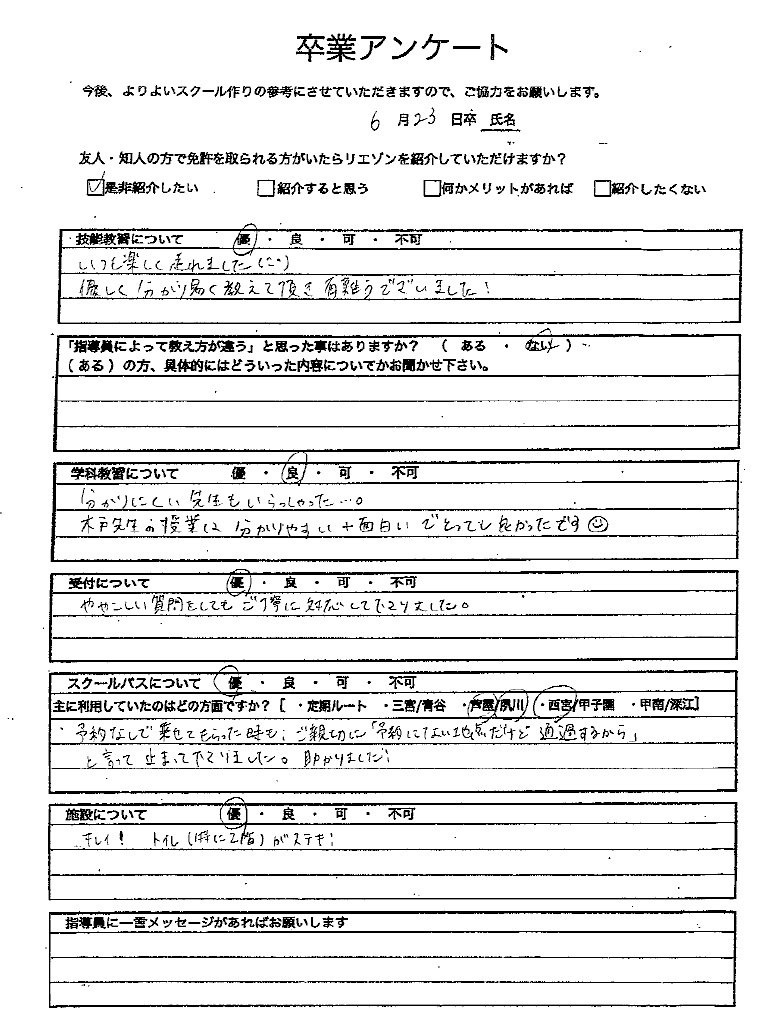 卒業アンケート
今後、よりよいスクール作りの参考にさせていただきますので、ご協力をお願いします。
6 月 23 日卒 氏名
友人・知人の方で免許を取られる方がいたらリエゾンを紹介していただけますか?
☑是非紹介したい □紹介すると思う □何かメリットがあれば □紹介したくない
技能教習について 優 ・ 良 ・ 可 ・ 不可
いつも楽しく走れました(^^)
優しく分かり易く教えて頂き有難うございました!
「指導員によって教え方が違う」と思った事はありますか? ( ある ・ ない )
(ある)の方、具体的にはどういった内容についてかお聞かせ下さい。
学科教習について 優 ・ 良 ・ 可 ・ 不可
分かりにくい先生もいらっしゃった…。
木戸先生の授業は分かりやすい+面白いでとっても良かったです☺
受付について 優 ・ 良 ・ 可 ・ 不可
ややこしい質問をしてもご丁寧に対応して下さりました。
スクールバスについて 優 ・ 良 ・ 可 ・ 不可
主に利用していたのはどの方面ですか? [ ・定期ルート ・三宮/青谷 ・芦屋/夙川 ・西宮/甲子園 ・甲南/深江]
予約なしで乗せてもらった時も、ご親切に「予約にない地点だけど通過するから」
と言って止まって下さりました。助かりました!
施設について 優 ・ 良 ・ 可 ・ 不可
キレイ! トイレ(特に2階)がステキ!
指導員に一言メッセージがあればお願いします